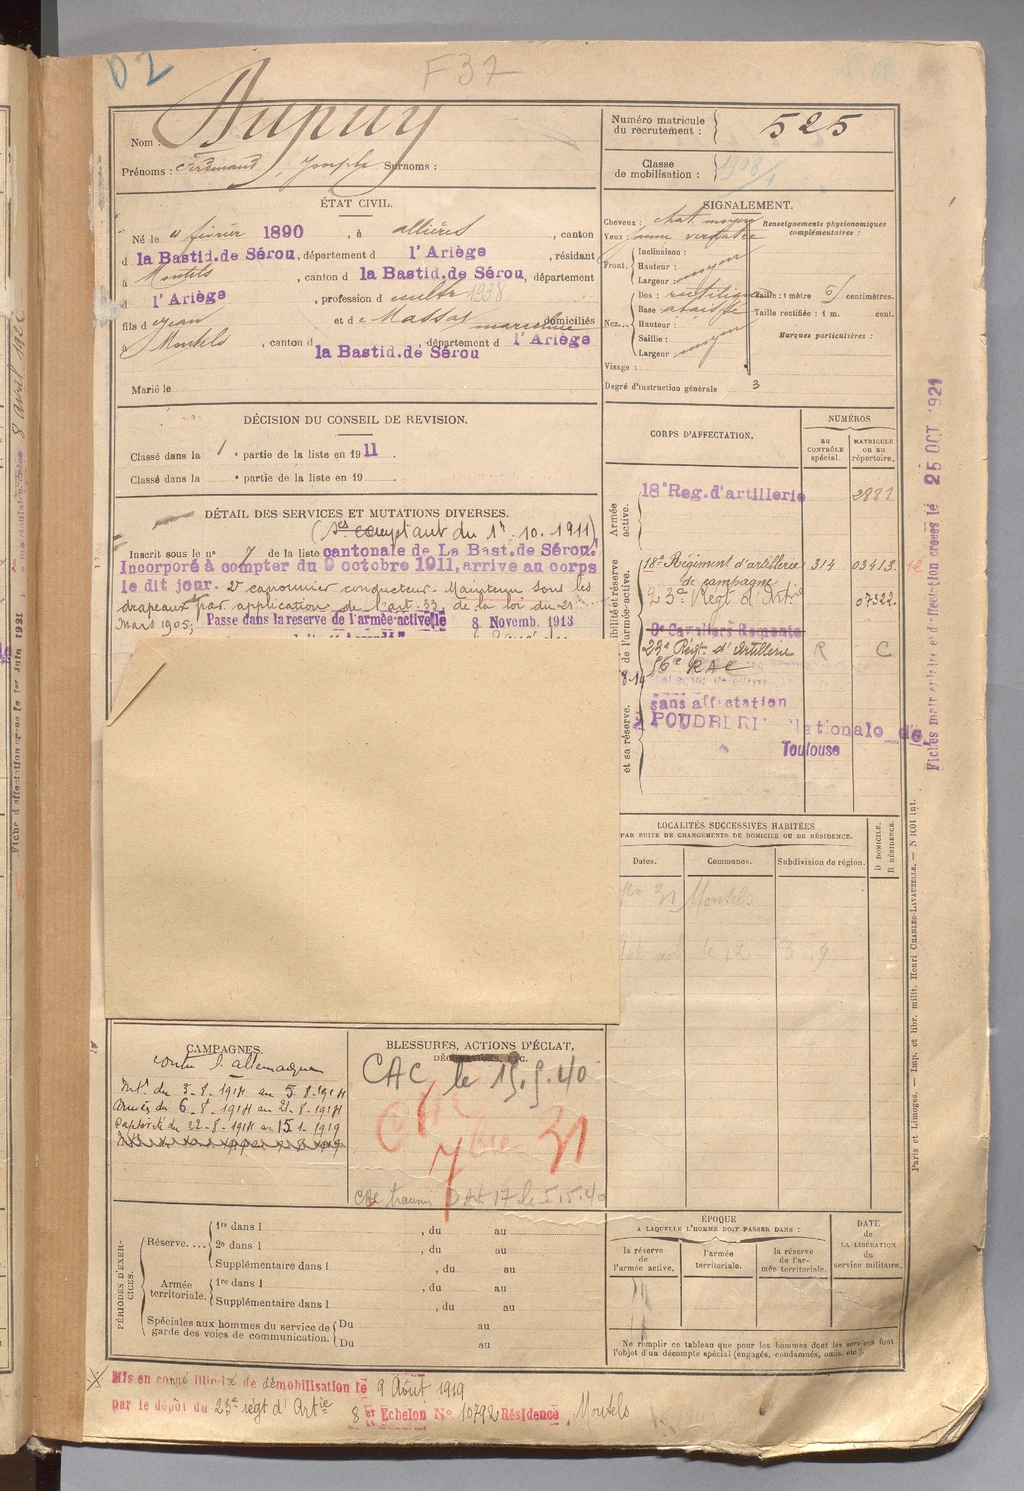 D2
F37
Nom : Dupuy
Prénoms : Ferdinand, Joseph Surnoms :
Numéro matricule du recrutement : 525
Classe de mobilisation :
ÉTAT CIVIL.
Né le 4 février 1890, à Allières, canton
d la Bastid. de Sérou, département d l'Ariège, résidant
à Montels, canton d la Bastid. de Sérou, département
d l'Ariège, profession d cultr 1938
fils d Jean et d e Massat marceline domiciliés
à Montels, canton d la Bastid. de Sérou, département d l'Ariège
Marié le
SIGNALEMENT.
Cheveux : chat. moyen
Yeux : verdatre
Renseignements physionomiques complémentaires :
Front. Inclinaison :
Hauteur : moyen
Largeur :
Nez... Dos : rectiligne
Base : abaissée
Hauteur :
Saillie : moyen
Largeur :
Visage :
Taille : 1 mètre 61 centimètres.
Taille rectifiée : 1 m. cent.
Marques particulières :
Degré d'instruction générale 3
DÉCISION DU CONSEIL DE REVISION.
Classé dans la 1e partie de la liste en 1911.
Classé dans la e partie de la liste en 19
DÉTAIL DES SERVICES ET MUTATIONS DIVERSES.
comptant du 1r. 10. 1911)
Inscrit sous le n° 7 de la liste cantonale de La Bast. de Sérou.
Incorporé à compter du 9 octobre 1911, arrive au corps
le dit jour. 2e canonnier conducteur. Maintenu sous les
drapeaux par application de l'art. 33, de la loi du 21
Mars 1905, Passe dans la reserve de l'armée active le 8 Novemb. 1913
CORPS D'AFFECTATION.
NUMÉROS
AU CONTRÔLE spécial.
MATRICULE ou au répertoire.
Armée active.
18e Reg. d'artillerie 2881
de l'armée active.
18e Régiment d'artillerie de campagne 314 03413.
23e Regt d'Artie 07322.
Cavaliers Remonte
23e Régt. d'Artillerie R C
56e RAC
et sa réserve.
sans affectation
POUDRERIE Nationale de
Toulouse
Fiches matriculaire et d'affectation creées le 25 OCT 1921
Fiche d'affectation creee le 1er Juin 1921
8 avril 1922
LOCALITÉS SUCCESSIVES HABITÉES
PAR SUITE DE CHANGEMENTS DE DOMICILE OU DE RÉSIDENCE.
Dates. Communes. Subdivision de région. D DOMICILE, R RÉSIDENCE.
31 Montels
CAMPAGNES.
contre l'allemagne
Int. du 3-8-1914 au 5-8-1914
Armées du 6-8-1914 au 21-8-1914
Captivité du 22-8-1914 au 15 1-1919
BLESSURES, ACTIONS D'ÉCLAT,
DÉCORATIONS, ETC.
CAC le 15.5.40
31
CAC transmis DArt 17 le 15.5.40
PÉRIODES D'EXERCICES.
Réserve.... 1re dans l , du au
2e dans l , du au
Supplémentaire dans l , du au
Armée territoriale. 1re dans l , du au
Supplémentaire dans l , du au
Spéciales aux hommes du service de garde des voies de communication. Du au
Du au
ÉPOQUE
A LAQUELLE L'HOMME DOIT PASSER DANS :
la réserve de l'armée active.
l'armée territoriale.
la réserve de l'armée territoriale.
DATE DE LA LIBÉRATION du service militaire.
Ne remplir ce tableau que pour les hommes dont les services font
l'objet d'un décompte spécial (engagés, condamnés, omis, etc.).
Paris et Limoges. — Imp. et libr. milit. Henri CHARLES-LAVAUZELLE. — N 1601 int.
Mis en congé illimité de démobilisation le 9 Août 1919
par le dépôt du 23e régt d'Artie 8 er Echelon N° 10792 Résidence Montels